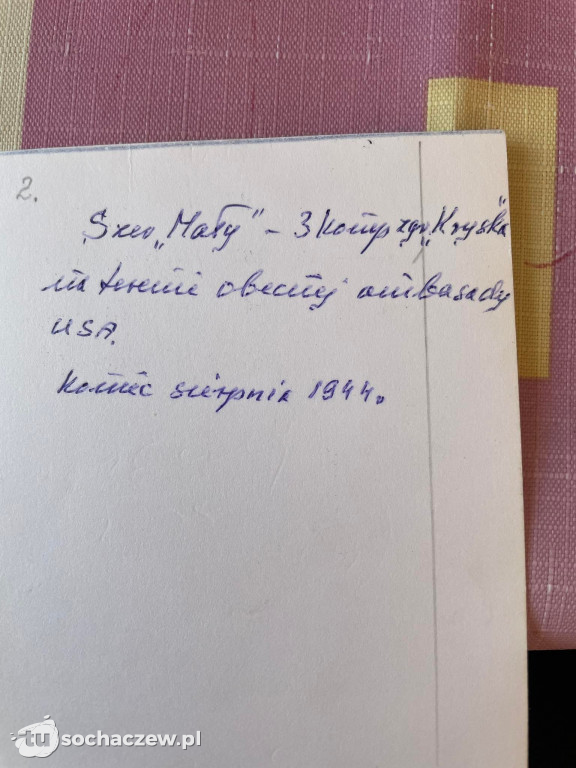 2.
Szer „Mały" - 3 komp zgr. „Kryska"
na terenie obecnej ambasady
USA.
Koniec sierpnia 1944.
tu sochaczew.pl